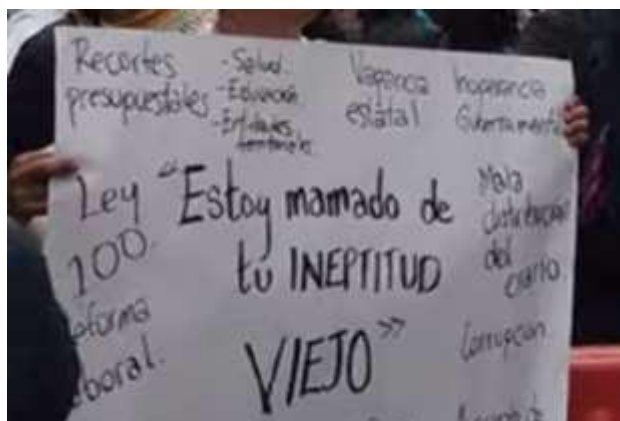 Recortes
presupuestales
- Salud.
- Educación
- Entidades
territoriales.
Vagancia
estatal
Inoperancia
Gubernamental
Ley
100.
"Estoy mamado de
tu INEPTITUD
VIEJO"
Mala
distribución
del
erario.
eforma
boral.
Corrupción